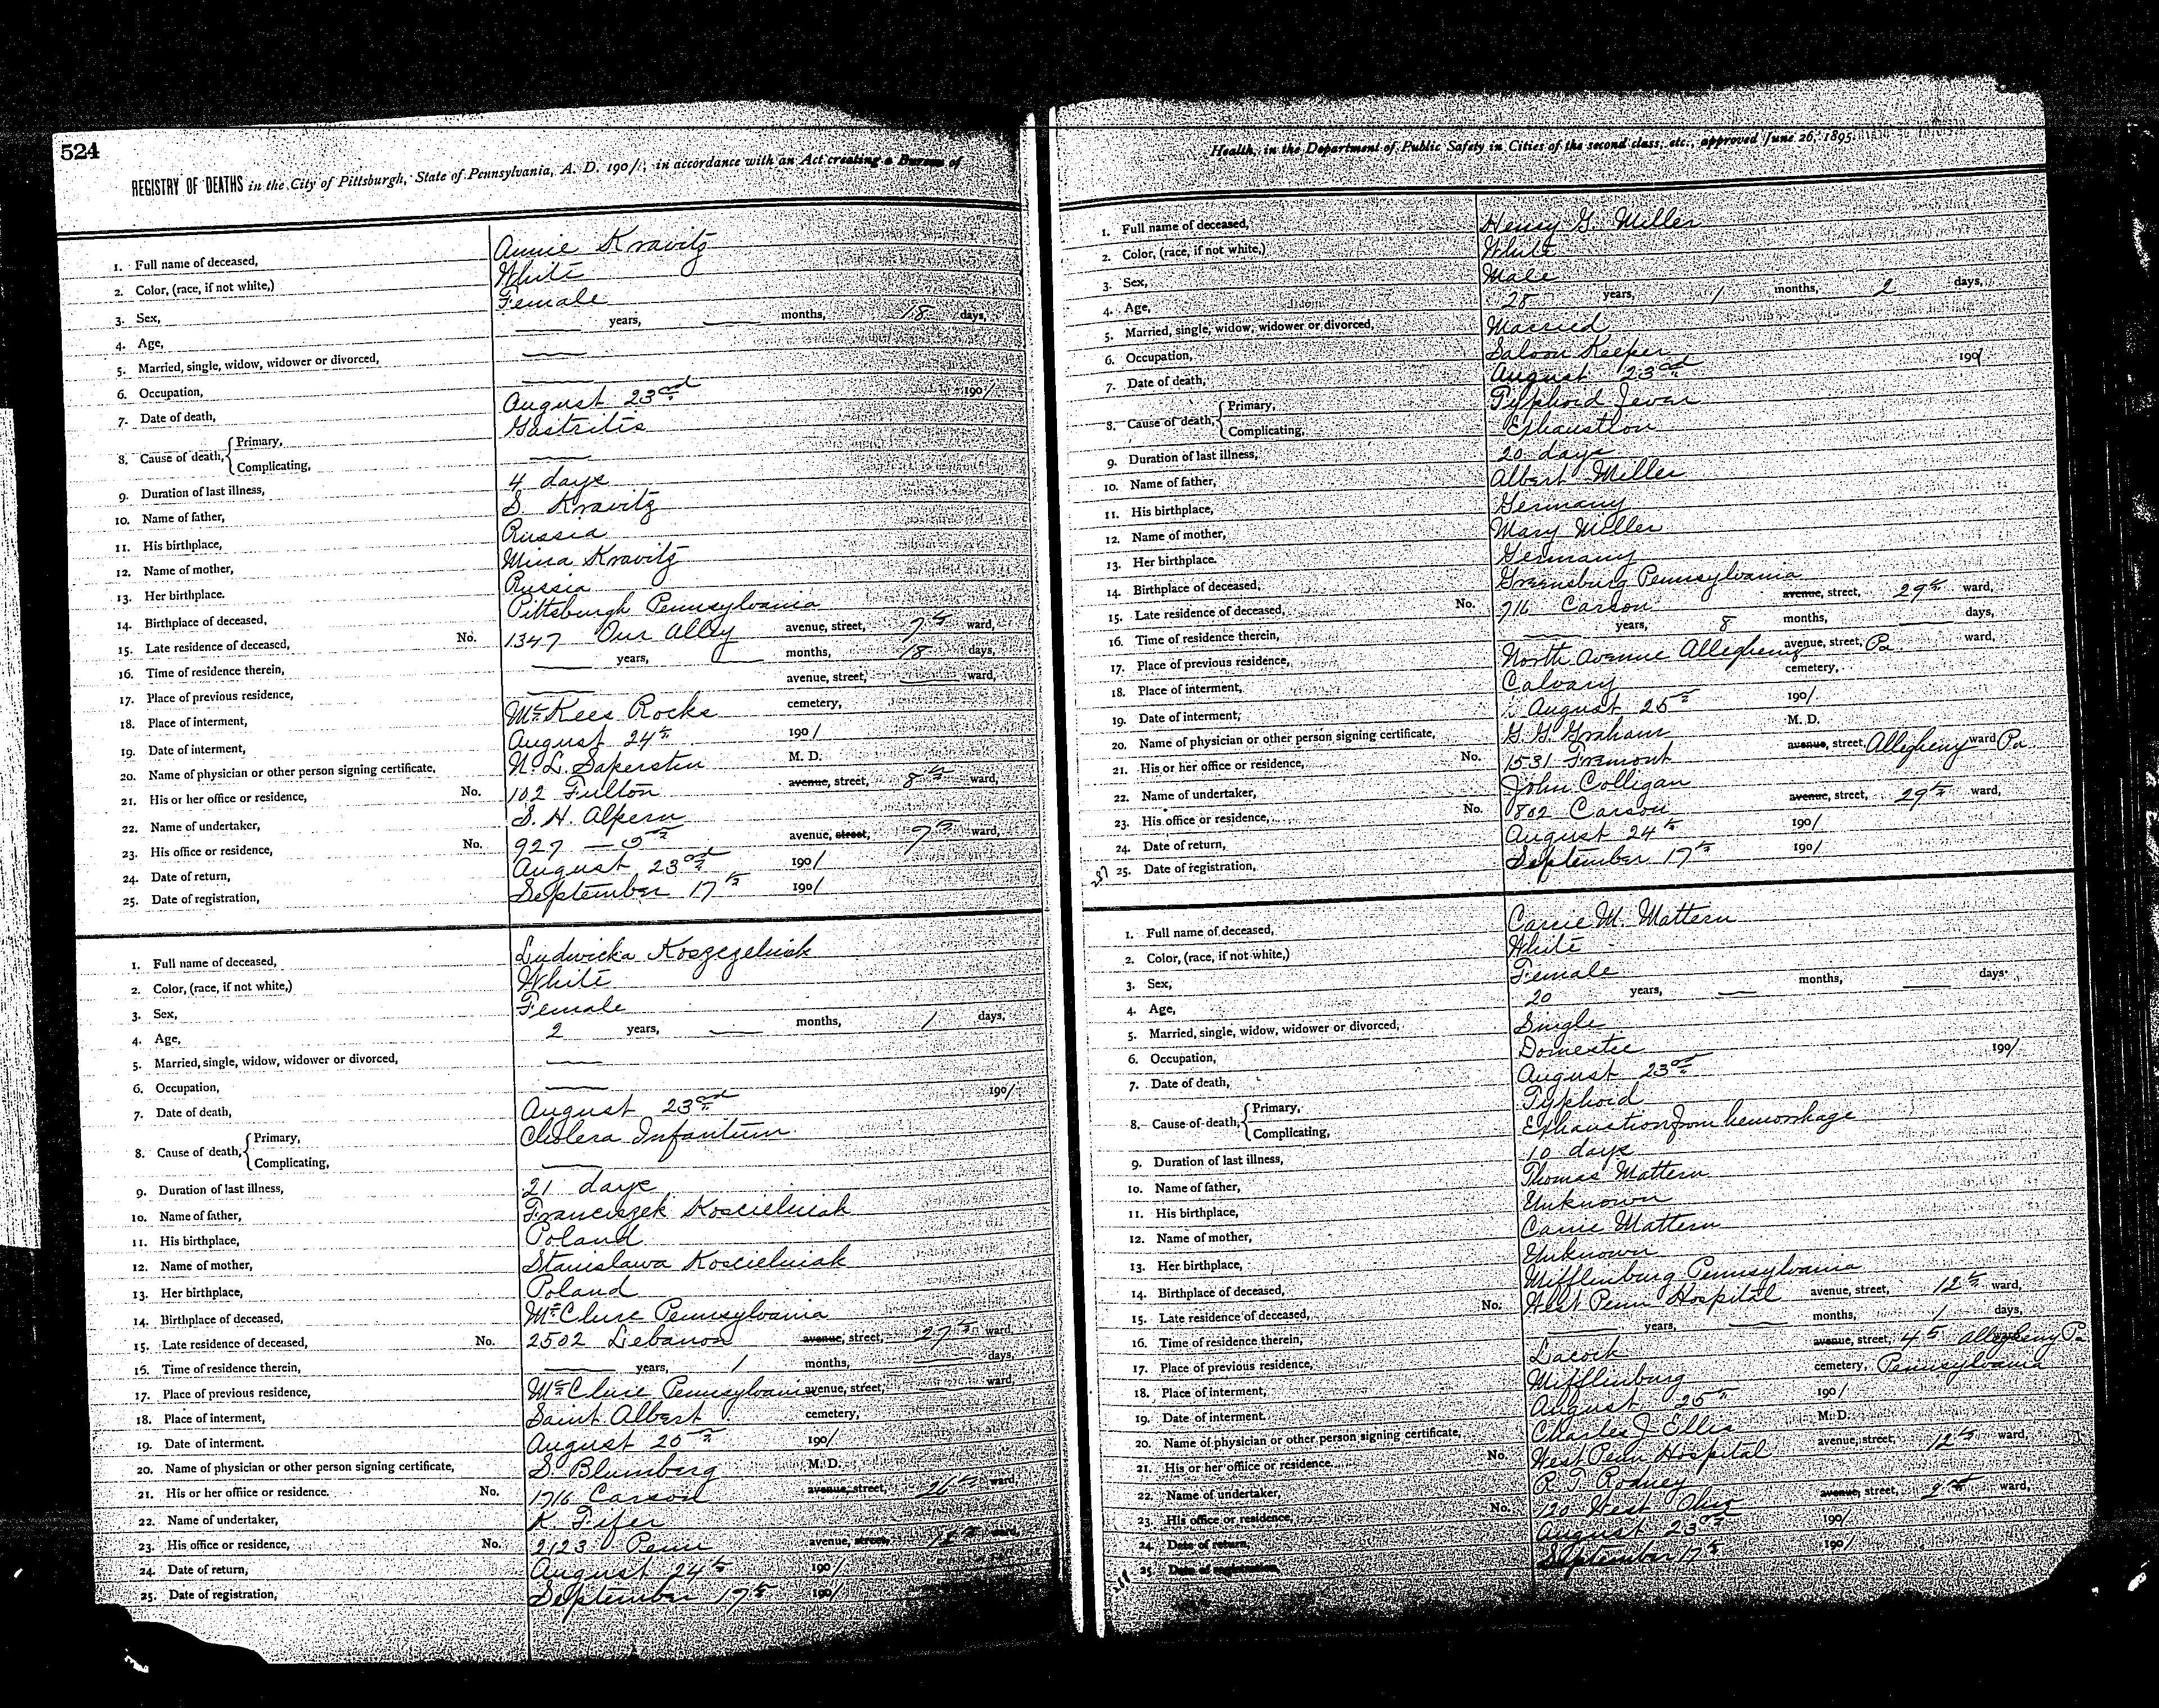 524
REGISTRY OF DEATHS in the City of Pittsburgh, State of Pennsylvania, A. D. 1901, in accordance with an Act creating a Bureau of
1. Full name of deceased, Annie Kravitz
2. Color, (race, if not white,) White
3. Sex, Female
4. Age, years, months, 18 days,
5. Married, single, widow, widower or divorced,
6. Occupation,
7. Date of death, August 23rd 1901
8. Cause of death, Primary, Gastritis
Complicating,
9. Duration of last illness, 4 days
10. Name of father, S. Kravitz
11. His birthplace, Russia
12. Name of mother, Mina Kravitz
13. Her birthplace. Russia
14. Birthplace of deceased, Pittsburgh Pennsylvania
15. Late residence of deceased, No. 1347 Our Alley avenue, street, 7th ward,
16. Time of residence therein, years, months, 18 days,
17. Place of previous residence, avenue, street, ward,
18. Place of interment, McKees Rocks cemetery,
19. Date of interment, August 24th 1901
20. Name of physician or other person signing certificate, N. L. Saperstein M. D.
21. His or her office or residence, No. 102 Fulton avenue, street, 8th ward,
22. Name of undertaker, S. H. Alpern
23. His office or residence, No. 927 — 5th avenue, street, 7th ward,
24. Date of return, August 23rd 1901
25. Date of registration, September 17th 1901
1. Full name of deceased, Ludwicka Koszczelniak
2. Color, (race, if not white,) White
3. Sex, Female
4. Age, 2 years, months, 1 days,
5. Married, single, widow, widower or divorced,
6. Occupation,
7. Date of death, August 23rd 1901
8. Cause of death, Primary, Cholera Infantum
Complicating,
9. Duration of last illness, 21 days
10. Name of father, Franciszek Koscielniak
11. His birthplace, Poland
12. Name of mother, Stanislawa Koscielniak
13. Her birthplace, Poland
14. Birthplace of deceased, McClure Pennsylvania
15. Late residence of deceased, No. 2502 Lebanon avenue, street, 27th ward,
16. Time of residence therein, years, 1 months, days,
17. Place of previous residence, McClure Pennsylvania avenue, street, ward,
18. Place of interment, Saint Albert cemetery,
19. Date of interment. August 25th 1901
20. Name of physician or other person signing certificate, S. Blumberg M. D.
21. His or her office or residence. No. 1716 Carson avenue, street, 26th ward,
22. Name of undertaker, K. Fifer
23. His office or residence, No. 2123 Penn avenue, street, ward,
24. Date of return, August 24th 1901
25. Date of registration, September 17th 1901
Health, in the Department of Public Safety in Cities of the second class, etc., approved June 26, 1895.
1. Full name of deceased, Henry G. Miller
2. Color, (race, if not white,) White
3. Sex, Male
4. Age, 28 years, 1 months, 2 days,
5. Married, single, widow, widower or divorced, Married
6. Occupation, Saloon Keeper
7. Date of death, August 23rd 1901
8. Cause of death, Primary, Typhoid Fever
Complicating, Exhaustion
9. Duration of last illness, 20 days
10. Name of father, Albert Miller
11. His birthplace, Germany
12. Name of mother, Mary Miller
13. Her birthplace. Germany
14. Birthplace of deceased, Greensburg Pennsylvania
15. Late residence of deceased, No. 716 Carson avenue, street, 29th ward,
16. Time of residence therein, years, 8 months, days,
17. Place of previous residence, North Avenue Allegheny avenue, street, Pa ward,
18. Place of interment, Calvary cemetery,
19. Date of interment, August 25th 1901
20. Name of physician or other person signing certificate, G. G. Graham M. D.
21. His or her office or residence, No. 1531 Fremont avenue, street, Allegheny ward, Pa
22. Name of undertaker, John Colligan
23. His office or residence, No. 802 Carson avenue, street, 29th ward,
24. Date of return, August 24th 1901
25. Date of registration, September 17th 1901
1. Full name of deceased, Carrie M. Mattern
2. Color, (race, if not white,) White
3. Sex, Female
4. Age, 20 years, months, days.
5. Married, single, widow, widower or divorced, Single
6. Occupation, Domestic
7. Date of death, August 23rd 1901
8. Cause of death, Primary, Typhoid
Complicating, Exhaustion from hemorrhage
9. Duration of last illness, 10 days
10. Name of father, Thomas Mattern
11. His birthplace, Unknown
12. Name of mother, Carrie Mattern
13. Her birthplace, Unknown
14. Birthplace of deceased, Mifflinburg Pennsylvania
15. Late residence of deceased, No. West Penn Hospital avenue, street, 12th ward,
16. Time of residence therein, years, months, 1 days,
17. Place of previous residence, Lacock avenue, street, 4th Allegheny Pa
18. Place of interment, Mifflinburg cemetery, Pennsylvania
19. Date of interment. August 25th 1901
20. Name of physician or other person signing certificate, Charles J. Ellis M. D.
21. His or her office or residence. No. West Penn Hospital avenue, street, 12th ward,
22. Name of undertaker, R. T. Rodney
23. His office or residence, No. 120 West Ohio avenue, street, ward,
24. Date of return, August 23rd 1901
25. Date of registration, September 17th 1901